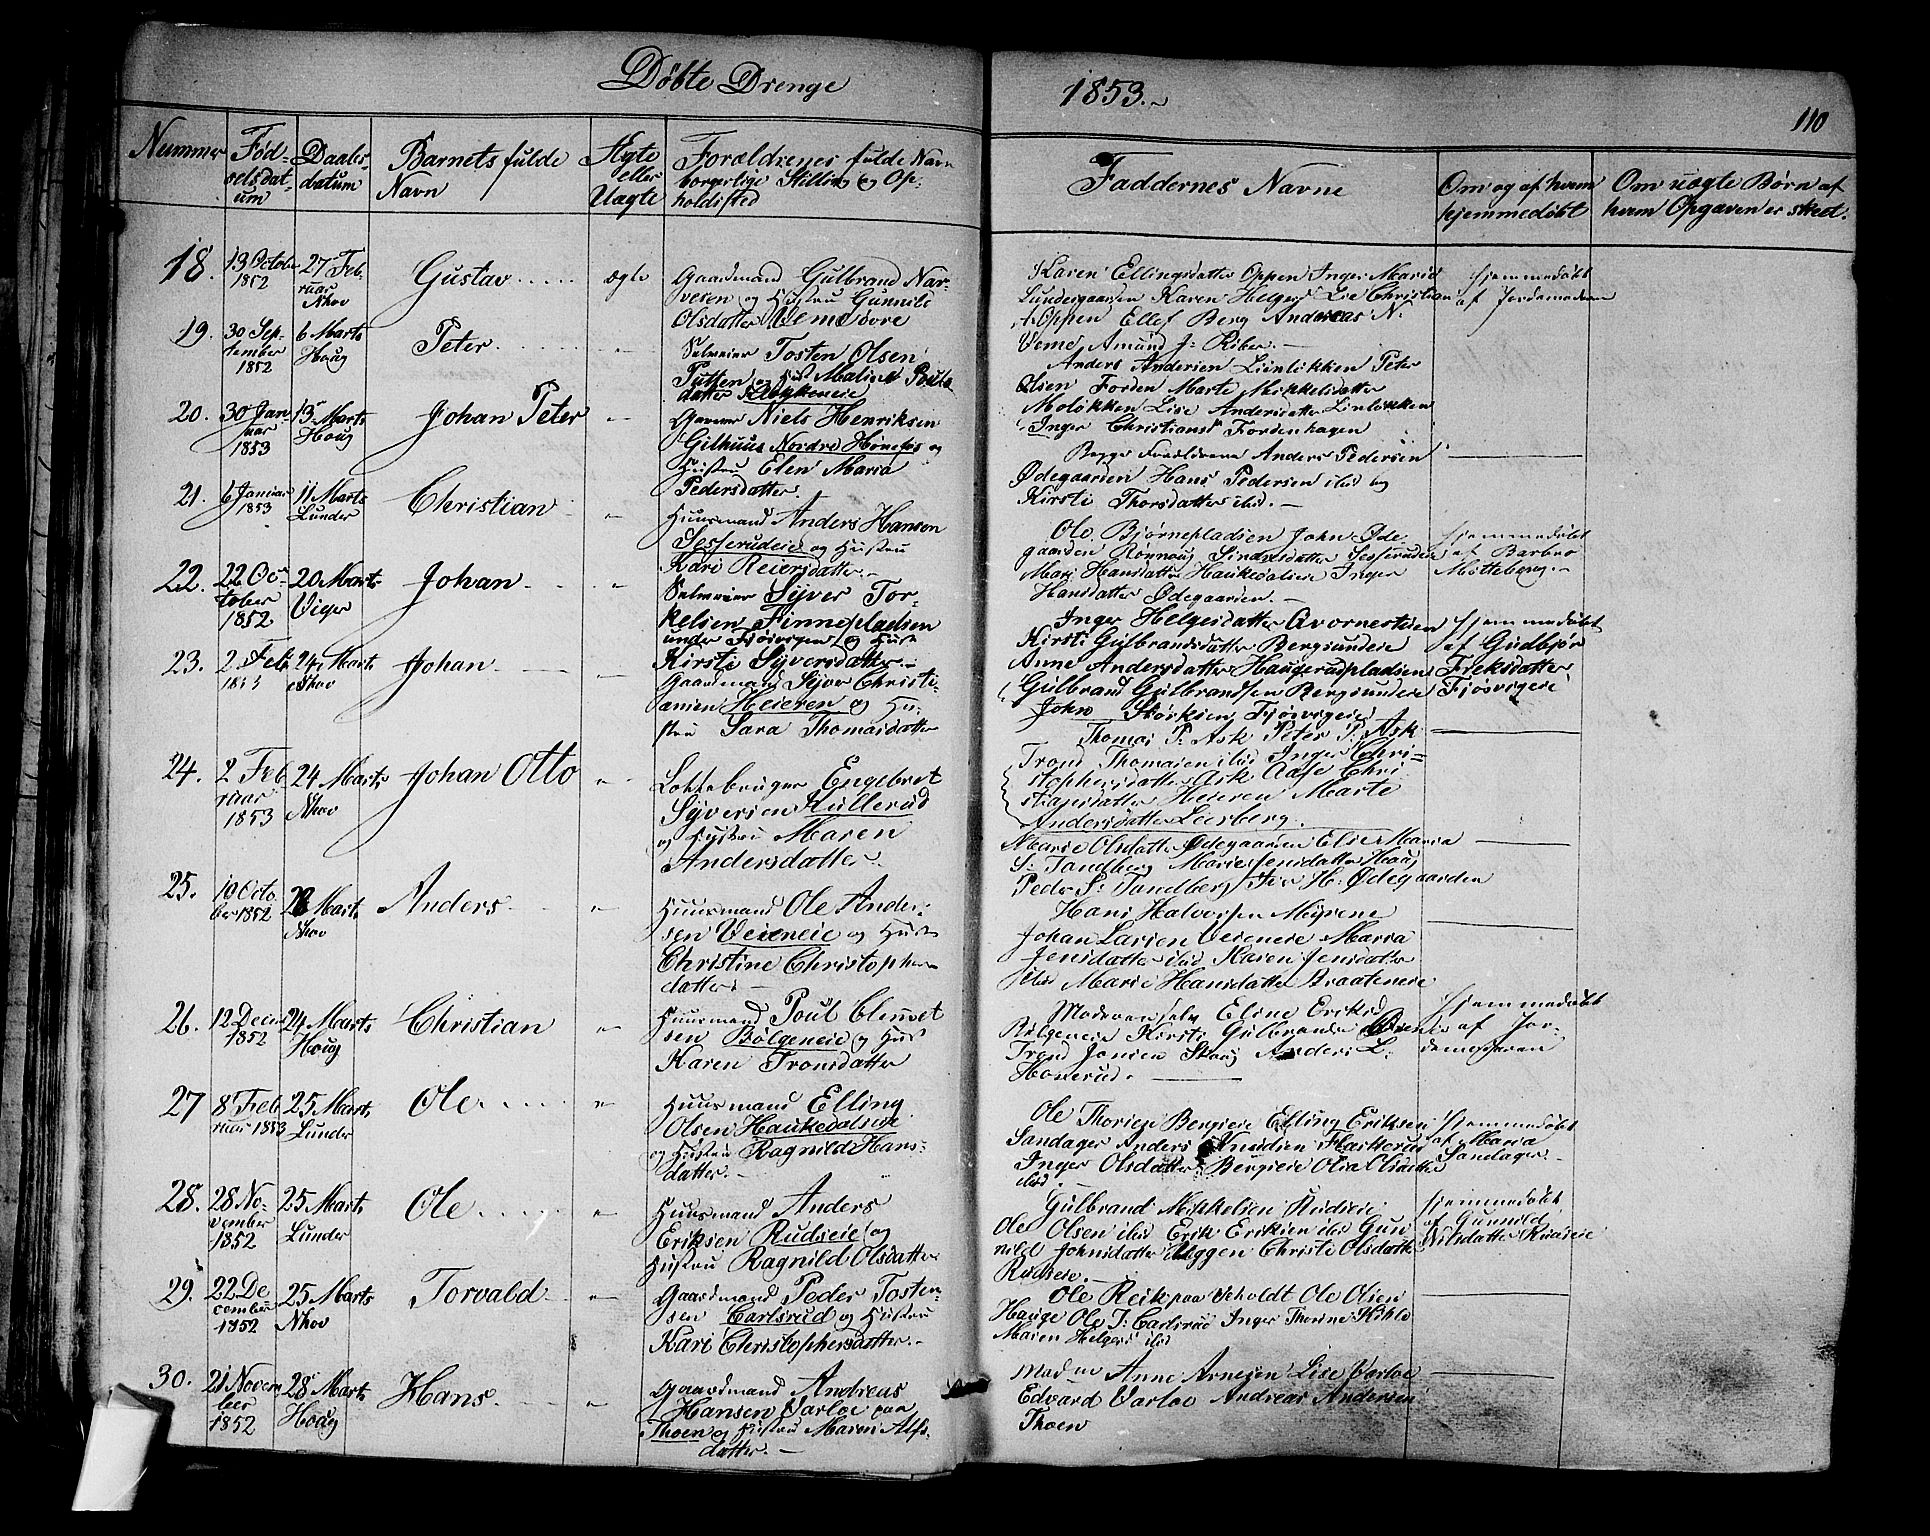 Døbte Drenge
1853.
110
Nummer
Fød-
selsdat-
um
Daabs-
datum
Barnets fulde
Navn
Ægte
eller
Uægte
Forældrenes fulde Navn
borgerlige Stilling og Op-
holdssted
Faddernes Navne
Om og af hvem
hjemmedøbt
Om uægte Børn af
hvem Opgaven er skeet.
18.
13 Octobr
1852
27 Feb-
ruar
Nhov
Gustav
ægte
Gaardmand Gulbrand Nar-
vesen og Hustru Gunnild
Olsdatter Veme øvre
Karen Ellingsdatter Oppen Inger Marie
Lundesgaarden Karen Helgers Lise Christian
Oppen Ellef Berg Andreas N.
Veme Amund J. Riber.
Hjemmedøbt
af Jordemoderen
19.
30 Sep-
tember
1852
6 Marts
Houg
Peter
"
Selveier Tosten Olsen
Putten og Hust Pouls
datter Klokkereie
Anders Andersen Lienløkken Peter
Olsen Forden Marte Mikkelsdatter
Moløkken Lise Andersdatter Linløkken
Inger Christiansd Fordenhagen
20.
30 Jan-
uar
1853
13 Marts
Houg
Johan Peter
"
Garver Niels Henriksen
Gilhuus Nordre Hønefos og
Hustru Elen Maria
Pedersdatter.
Begge Forældrene Anders Pedersen
Ødegaarden Hans Pedersen ibid og
Kirsti Thorsdatter ibid.
21.
6 Januar
1853
11 Marts
Lunder
Christian
"
Huusmand Anders Hansen
Sesserudeie og Hustru
Kari Reiersdatter.
Ole Bjørnepladsen John Øde
gaarden Rønnoug Sindresdatter Sesserudeie
Mari Hansdatter Haukedalseie Inger
Hansdatter Ødegaarden.
Hjemmedøbt
af Barbro
Møtteberg.
22.
22 Oc-
tober
1852
20 Marts
Viger
Johan
"
Selveier Syver Tor-
kelsen Finnepladsen
under Fjøsvigen og Hust
Kirsti Syversdatter
Inger Helgesdatter
Kirsti Gulbrandsdatter Bergsundeie
Anne Andersdatter Haugerudpladsen
Gulbrand Gulbrandsen Bergsundeie
John Størksen Fjøsvigeie
Hjemmedøbt
af Gudbjør
Fjøsvigeie
23.
2. Feb
1853
24. Marts
Nhov
Johan
"
Gaardmand Syver Christi-
ansen Heieren og Hu-
stru Sara Thomasdatter
Thomas P. Ask Peter P. Ask
Trond Thomasen ibid Inger Chri-
stophersdatter Ask Aase Chri
stiansdatter Heieren Marte
Andersdatter Leerberg.
24.
2 Feb
ruar
1853
24 Marts
Nhov
Johan Otto
"
Løkkebruger Engebret
Syversen Hullerud
og Hustru Maren
Andersdatter.
Marie Olsdatter Ødegaarden Else Maria
S. Tandberg Marie Jensdatter Houg
Peder S. Tandberg Iver H. Ødegaarden
25.
19 Octo
ber 1852
24 Marts
Nhov
Anders
"
Huusmand Ole Ander-
sen Veieneie og Hust
Christine Christophers
datter.
Hans Halvorsen Myrene
Johan Larsen Veieneie Maria
Jensdatter ibid Karen Jensdatter
ibid Marie Hansdatter Braateneie
26.
12 Decem
1852
24 Marts
Houg
Christian
"
Huusmand Poul Clemet
sen Bølgeneie og Hust
Karen Tronsdatter
Moderen selv Eline Eriksd
Bølgeneie Kirsti Gulbrandsd
Trond Jonsen Skoug Anders L.
Honerud.
Hjemmedøbt
af Jor-
demoderen
27
8 Feb
ruar 1853
25 Marts
Lunder
Ole
"
Huusmand Elling
Olsen Haukedalseie
og Hustru Ragnild Hans-
datter.
Ole Thorsen Bergseie Elling Eriksen
Sandager Anders Knudsen Flaskerud
Inger Olsdatter Bergseie Olia Olsdatter
ibid.
Hjemmedøbt
af Maria
Sandager.
28.
28 No-
vember
1852
25 Marts
Lunder
Ole
"
Huusmand Anders
Eriksen Rudseie og
Hustru Ragnild Olsdatter
Gulbrand Mikkelsen Rudseie
Ole Olsen ibid Erik Eriksen ibid Gun
nild Johnsdatter Uggen Christi Olsdatter
Rudseie.
Hjemmedøbt
af Gunnild
Nilsdatter Rudseie
29.
22 De
cember
1852
25 Marts
Nhov
Torvald
"
Gaardmand Peder Tosten-
sen Carlsrud og Hustru
Kari Christophersdatter.
Ole Ole Olsen
Hauge Ole T. Carlsrud Inger Thorine Kihle
Maren Helgesd ibid
30.
21 Novem
ber
1852
28 Marts
Houg
Hans
"
Gaardmand Andreas
Hansen Varloe paa
Thoen og Hustru Maren Alfs-
datter.
Moderen Anne Arnesen Lise Varloe
Edvard Varloe Andreas Andersen
Thoen